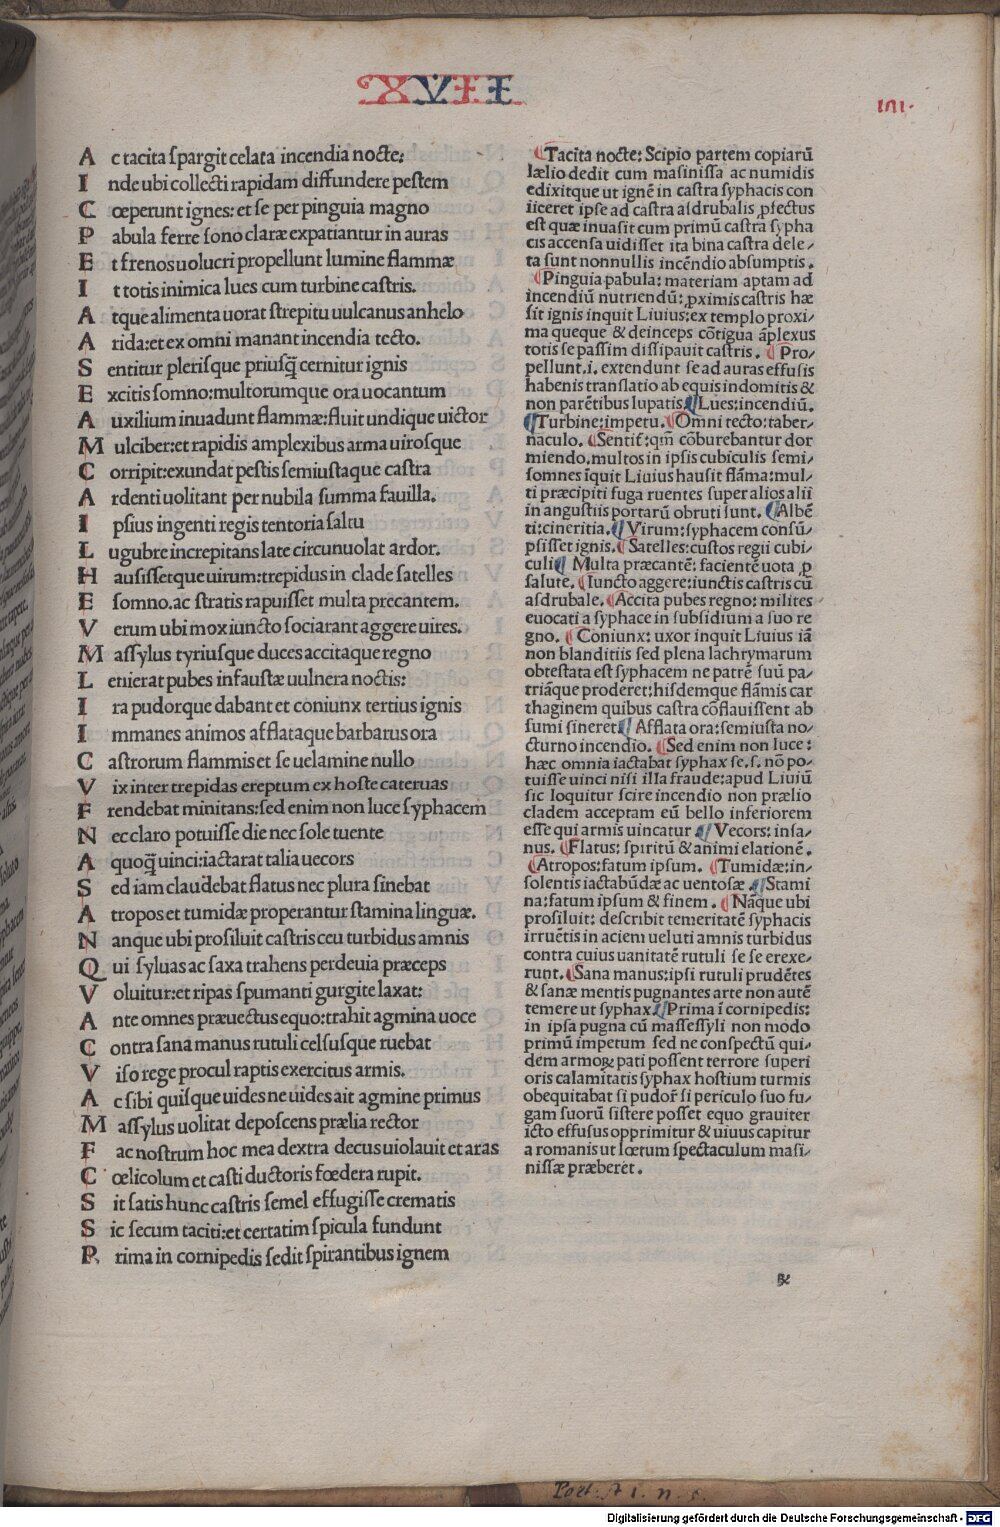 XVII
A c tacita ſpargit celata incendia nocte:
I nde ubi collecti rapidam diffundere peſtem
C œperunt ignes: et ſe per pinguia magno
P abula ferre ſono claræ expatiantur in auras
E t frenos uolucri propellunt lumine flammæ
I t totis inimica lues cum turbine caſtris.
A tque alimenta uorat ſtrepitu uulcanus anhelo
A rida: et ex omni manant incendia tecto.
S entitur pleriſque priuſq̄ cernitur ignis
E xcitis ſomno: multorumque ora uocantum
A uxilium inuadunt flammæ: fluit undique uictor
M ulciber: et rapidis amplexibus arma uiroſque
C orripit: exundat peſtis ſemiuſtaque caſtra
A rdenti uolitant per nubila ſumma fauilla.
I pſius ingenti regis tentoria ſaltu
L ugubre increpitans late circunuolat ardor.
H auſiſſetque uirum: trepidus in clade ſatelles
E ſomno. ac ſtratis rapuiſſet multa precantem.
V erum ubi mox iuncto ſociarant aggere uires.
M aſſylus tyriuſque duces accitaque regno
L enierat pubes infauſtæ uulnera noctis:
I ra pudorque dabant et coniunx tertius ignis
I mmanes animos afflataque barbarus ora
C aſtrorum flammis et ſe uelamine nullo
V ix inter trepidas ereptum ex hoſte cateruas
F rendebat minitans: ſed enim non luce ſyphacem
N ec claro potuiſſe die nec ſole tuente
A quoq̄ uinci: iactarat talia uecors
S ed iam claudebat flatus nec plura ſinebat
A tropos et tumidæ properantur ſtamina linguæ.
N anque ubi proſiluit caſtris ceu turbidus amnis
Q ui ſyluas ac ſaxa trahens per deuia præceps
V oluitur: et ripas ſpumanti gurgite laxat:
A nte omnes præuectus equo: trahit agmina uoce
C ontra ſana manus rutuli celſuſque ruebat
V iſo rege procul raptis exercitus armis.
A c ſibi quiſque uides ne uides ait agmine primus
M aſſylus uolitat depoſcens prælia rector
F ac noſtrum hoc mea dextra decus uiolauit et aras
C œlicolum et caſti ductoris fœdera rupit.
S it ſatis hunc caſtris ſemel effugiſſe crematis
S ic ſecum taciti: et certatim ſpicula fundunt
P rima in cornipedis ſedit ſpirantibus ignem
Tacita nocte: Scipio partem copiarū
lælio dedit cum maſiniſſa ac numidis
edixitque ut ignē in caſtra ſyphacis con
iiceret ipſe ad caſtra aſdrubalis ꝓfectus
eſt quæ inuaſit cum primū caſtra ſypha
cis accenſa uidiſſet ita bina caſtra dele/
ta ſunt nonnullis incēndio abſumptis.
Pinguia pabula: materiam aptam ad
incendiū nutriendū: ꝓximis caſtris hæ
ſit ignis inquit Liuius: ex templo proxi/
ma queque & deinceps cōtigua āplexus
totis ſe paſſim diſſipauit caſtris. Pro/
pellunt .i. extendunt ſe ad auras effuſis
habenis tranſlatio ab equis indomitis &
non parētibus lupatis Lues: incendiū.
Turbine: impetu. Omni tecto: taber/
naculo. Sentiť: qm̄ cōburebantur dor
miendo. multos in ipſis cubiculis ſemi/
ſomnes īquit Liuius hauſit flāma: mul/
ti præcipiti fuga ruentes ſuper alios alii
in anguſtiis portarū obruti ſunt. Albē
ti: cineritia. Virum: ſyphacem conſū/
pſiſſet ignis. Satelles: cuſtos regii cubi/
culi Multa præcantē: facientē uota ꝓ
ſalute. Iuncto aggere: iunctis caſtris cū
aſdrubale. Accita pubes regno: milites
euocati a ſyphace in ſubſidium a ſuo re
gno. Coniunx: uxor inquit Liuius iā
non blanditiis ſed plena lachrymarum
obteſtata eſt ſyphacem ne patrē ſuū pa/
triāque proderet: hiſdemque flāmis car
thaginem quibus caſtra cōflauiſſent ab
ſumi ſineret Afflata ora: ſemiuſta no/
cturno incendio. Sed enim non luce:
hæc omnia iactabat ſyphax ſe. ſ. nō po/
tuiſſe uinci niſi illa fraude: apud Liuiū
ſic loquitur ſcire incendio non prælio
cladem acceptam eū bello inferiorem
eſſe qui armis uincatur Vecors: inſa/
nus. Flatus: ſpiritū & animi elationē.
Atropos: fatum ipſum. Tumidæ: in/
ſolentis iactabūdæ ac uentoſæ Stami
na: fatum ipſum & finem. Nāque ubi
proſiluit: deſcribit temeritatē ſyphacis
irruētis in aciem ueluti amnis turbidus
contra cuius uanitatē rutuli ſe ſe erexe/
runt. Sana manus: ipſi rutuli prudētes
& ſanæ mentis pugnantes arte non autē
temere ut ſyphax Prima ī cornipedis:
in ipſa pugna cū maſſeſſyli non modo
primū impetum ſed ne conſpectū qui/
dem armoꝝ pati poſſent terrore ſuperi
oris calamitatis ſyphax hoſtium turmis
obequitabat ſi pudoř ſi periculo ſuo fu/
gam ſuorū ſiſtere poſſet equo grauiter
icto effuſus opprimitur & uiuus capitur
a romanis ut lœtum ſpectaculum maſi/
niſſæ præberet.
Poet. A 1. n. 5.
Digitalisierung gefördert durch die Deutsche Forschungsgemeinschaft - DFG